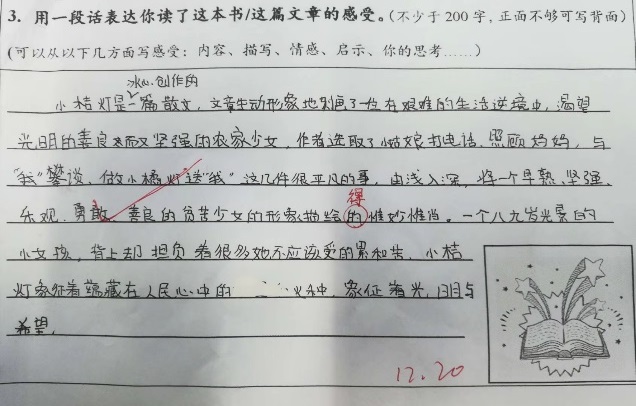 3. 用一段话表达你读了这本书/这篇文章的感受。(不少于 200 字,正面不够可写背面)
(可以从以下几方面写感受:内容、描写、情感、启示、你的思考……)
冰心创作的
小桔灯是一篇散文,文章生动形象地刻画了一位在艰难的生活逆境中,渴望
光明的善良而又坚强的农家少女,作者选取了小姑娘打电话、照顾妈妈,与
“我”攀谈、做小橘灯送“我”这几件很平凡的事,由浅入深,将一个早熟、坚强、
乐观、勇敢、善良的贫苦少女的形象描绘的惟妙惟肖。一个八九岁光景的
得
小女孩,背上却担负着很多她不应该受的累和苦,小桔
灯象征着蕴藏在人民心中的火种,象征着光明与
希望。
12.20